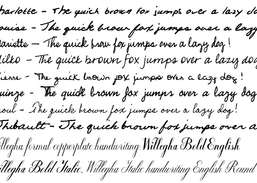 harlotte - The quick brown fox jumps over a lazy do
ouise - The quick brown fox jumps over a lazy dog!
ariette - The quick brown fox jumps over a lazy dog!
ilto - The quick brown fox jumps over a lazy
ierre - The quick brown fox jumps over a lazy dog!
uinze - The quick brown fox jumps over a lazy dog
aoul - The quick brown fox jumps over a lazy dog!
Thibault - The quick brown fox jumps over a
illegha formal copperplate handwriting Willegha Bold English
illegha Bold Italic, Willegha Italic handwriting English Round